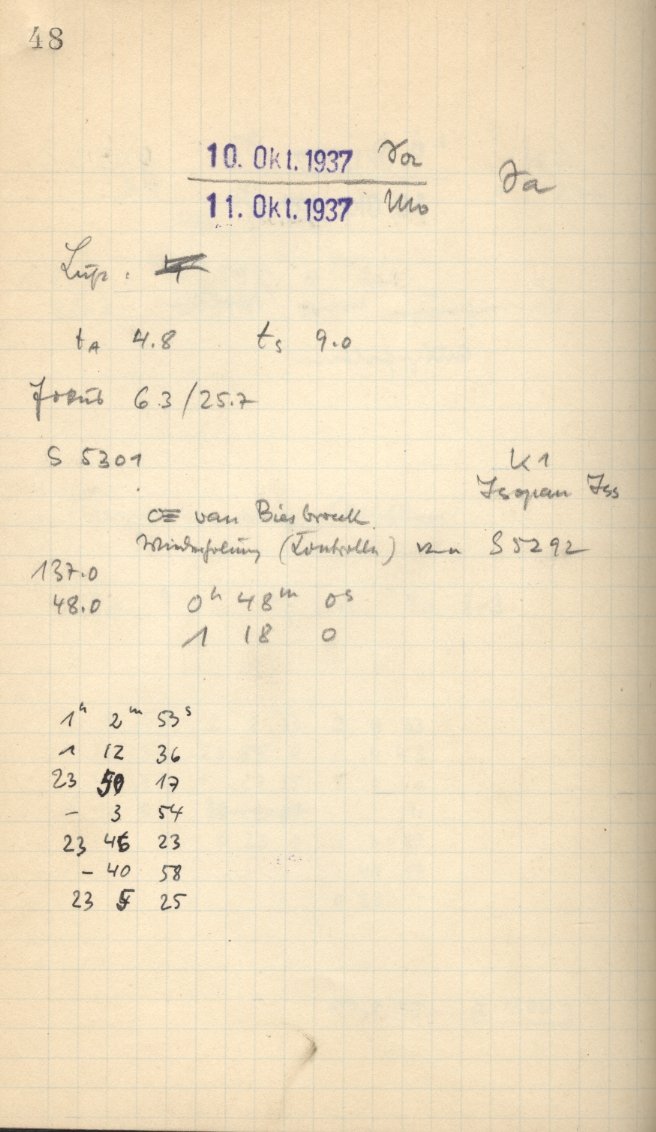 48
10. Okt. 1937 So
11. Okt. 1937 Mo
Ja
Lupe :
tA 4.8 ts 9.0
Fokus 6.3/25.7
S 5301 K1
Isopan Iss
van Biesbroeck
Wiederholung (Kontrolle) von S 5292
137.0
48.0 0h 48m 0s
1 18 0
1h 2m 53s
1 12 36
23 50 17
- 3 54
23 46 23
- 40 58
23 5 25